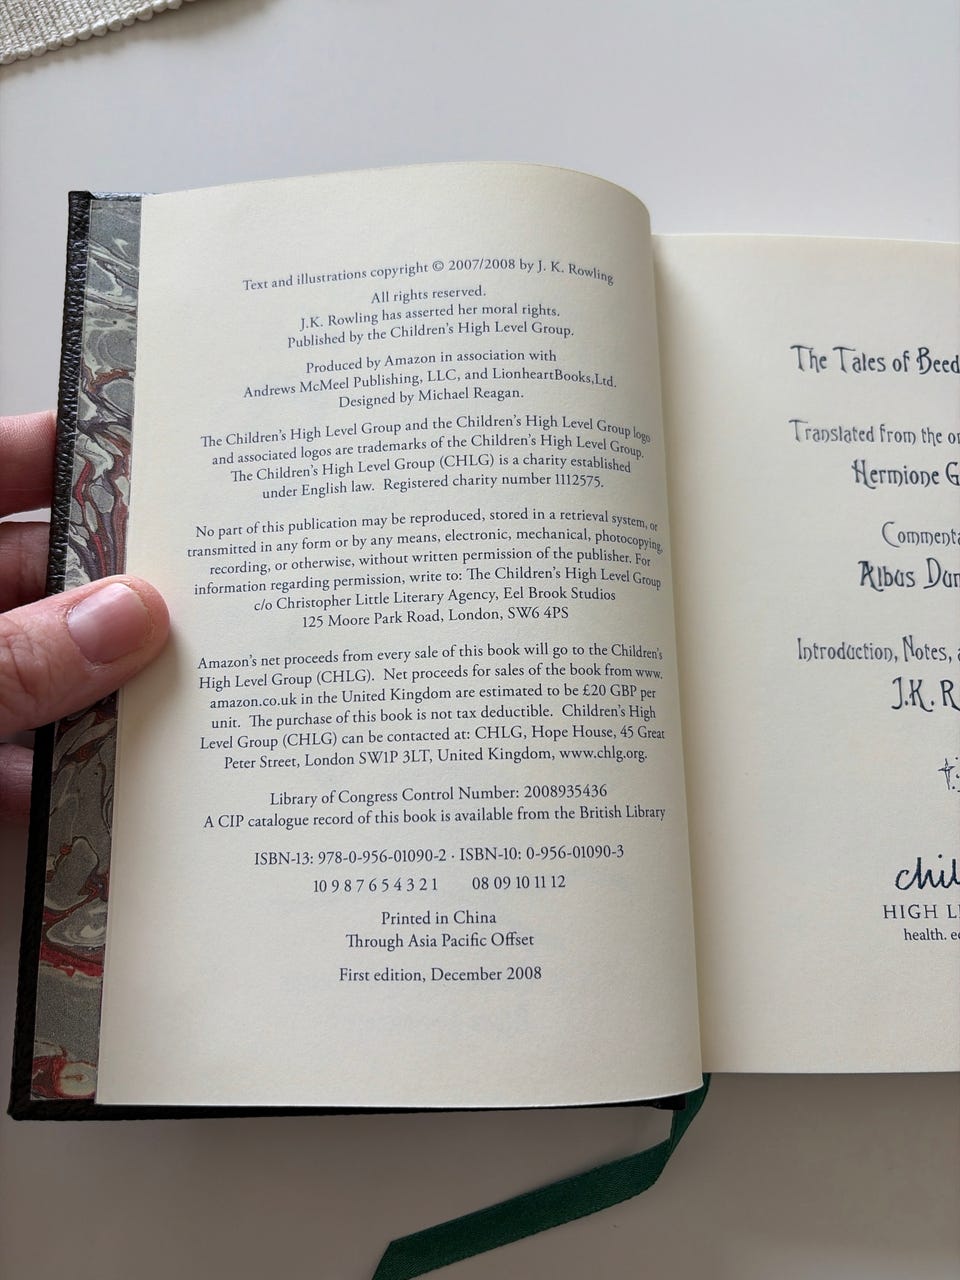 Text and illustrations copyright © 2007/2008 by J. K. Rowling
All rights reserved.
J.K. Rowling has asserted her moral rights.
Published by the Children's High Level Group.
Produced by Amazon in association with
Andrews McMeel Publishing, LLC, and LionheartBooks,Ltd.
Designed by Michael Reagan.
The Children's High Level Group and the Children's High Level Group logo
and associated logos are trademarks of the Children's High Level Group.
The Children's High Level Group (CHLG) is a charity established
under English law. Registered charity number 1112575.
No part of this publication may be reproduced, stored in a retrieval system, or
transmitted in any form or by any means, electronic, mechanical, photocopying,
recording, or otherwise, without written permission of the publisher. For
information regarding permission, write to: The Children's High Level Group
c/o Christopher Little Literary Agency, Eel Brook Studios
125 Moore Park Road, London, SW6 4PS
Amazon's net proceeds from every sale of this book will go to the Children's
High Level Group (CHLG). Net proceeds for sales of the book from www.
amazon.co.uk in the United Kingdom are estimated to be £20 GBP per
unit. The purchase of this book is not tax deductible. Children's High
Level Group (CHLG) can be contacted at: CHLG, Hope House, 45 Great
Peter Street, London SW1P 3LT, United Kingdom, www.chlg.org.
Library of Congress Control Number: 2008935436
A CIP catalogue record of this book is available from the British Library
ISBN-13: 978-0-956-01090-2 · ISBN-10: 0-956-01090-3
10 9 8 7 6 5 4 3 2 1 08 09 10 11 12
Printed in China
Through Asia Pacific Offset
First edition, December 2008
The Tales of Beed
Translated from the or
Hermione G
Commenta
Albus Dum
Introduction, Notes, a
J.K. R
chil
HIGH L
health. e